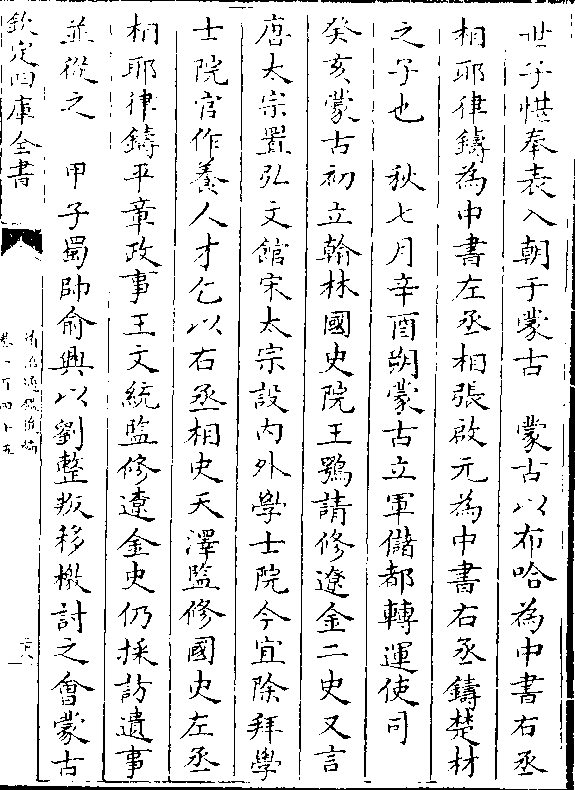 世子愖奉表入朝于蒙古　蒙古以布哈為中書右丞
相耶律鑄為中書左丞相張啟元為中書右丞鑄楚材
之子也　秋七月辛酉朔蒙古立軍儲都轉運使司
癸亥蒙古初立翰林國史院王鶚請修遼金二史又言
唐太宗置弘文館宋太宗設内外學士院今宜除拜學
士院官作養人才乞以右丞相史天澤監修國史左丞
相耶律鑄平章政事王文統監修遼金史仍採訪遺事
並從之　甲子蜀帥俞興以劉整叛移檄討之會蒙古
欽定四庫全書
資治通鑑後編
卷一百四十五